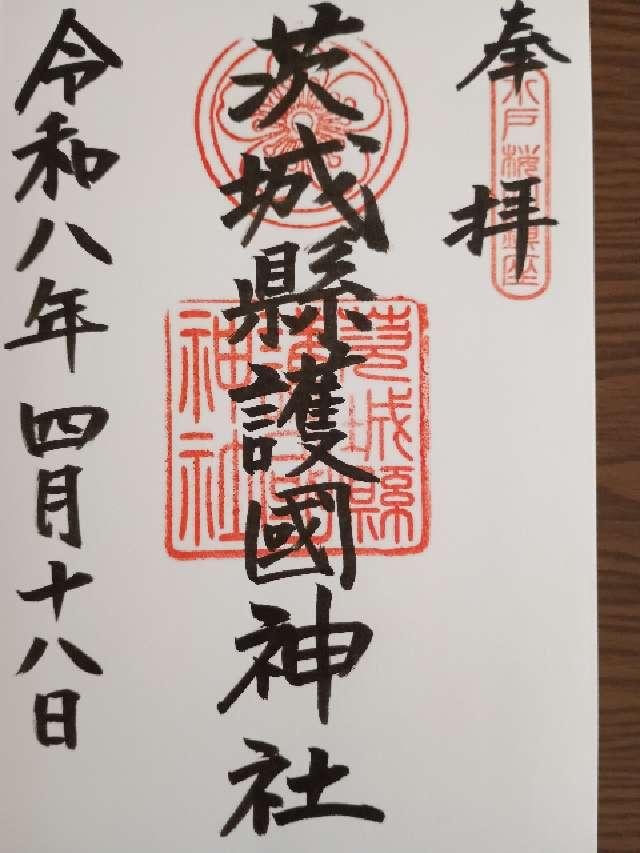 奉拝
水戸桜山鎮座
茨城縣護國神社
茨城縣護國神社
令和八年四月十八日